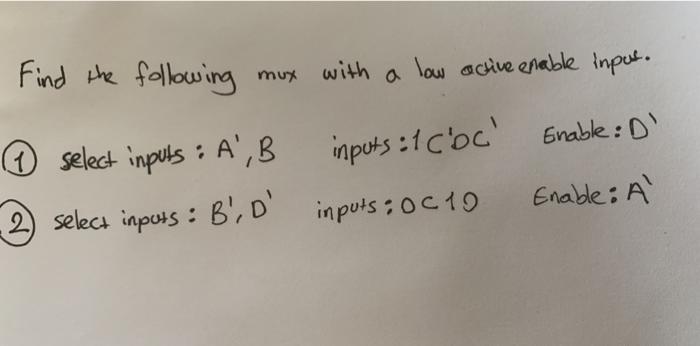 Find the following mux with a low active enable input.
① select inputs : A', B inputs : 1 C' 0 C' Enable : D'
② select inputs : B', D' inputs : 0 C 1 0 Enable : A'